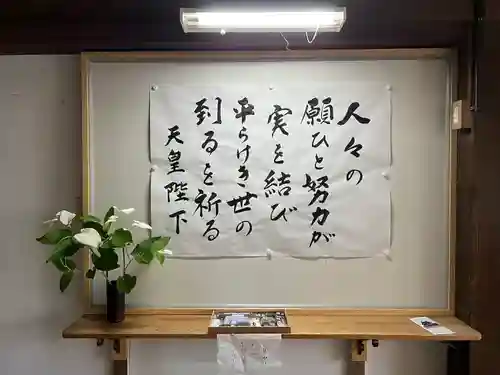 人々の
願ひと努力が
実を結び
平らけき世の
到るを祈る
天皇陛下